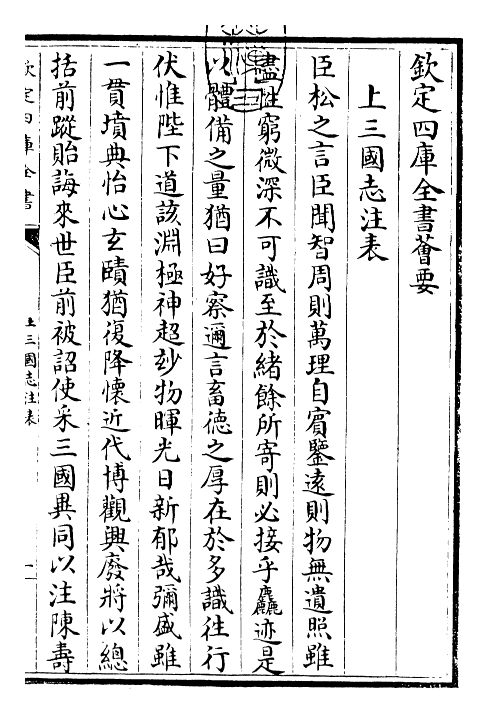 欽定四庫全書薈要
上三國志注表
臣松之言臣聞智周則萬理自賓鑒遠則物無遺照雖
盡性窮微深不可識至於緒餘所寄則必接乎麤迹是
以體備之量猶曰好察邇言畜德之厚在於多識徃行
伏惟陛下道該淵極神超妙物暉光日新郁哉彌盛雖
一貫墳典怡心玄賾猶復降懷近代博觀興廢將以總
括前蹤貽誨來世臣前被詔使采三國異同以注陳壽
欽定四庫全書
上三國志注表
一